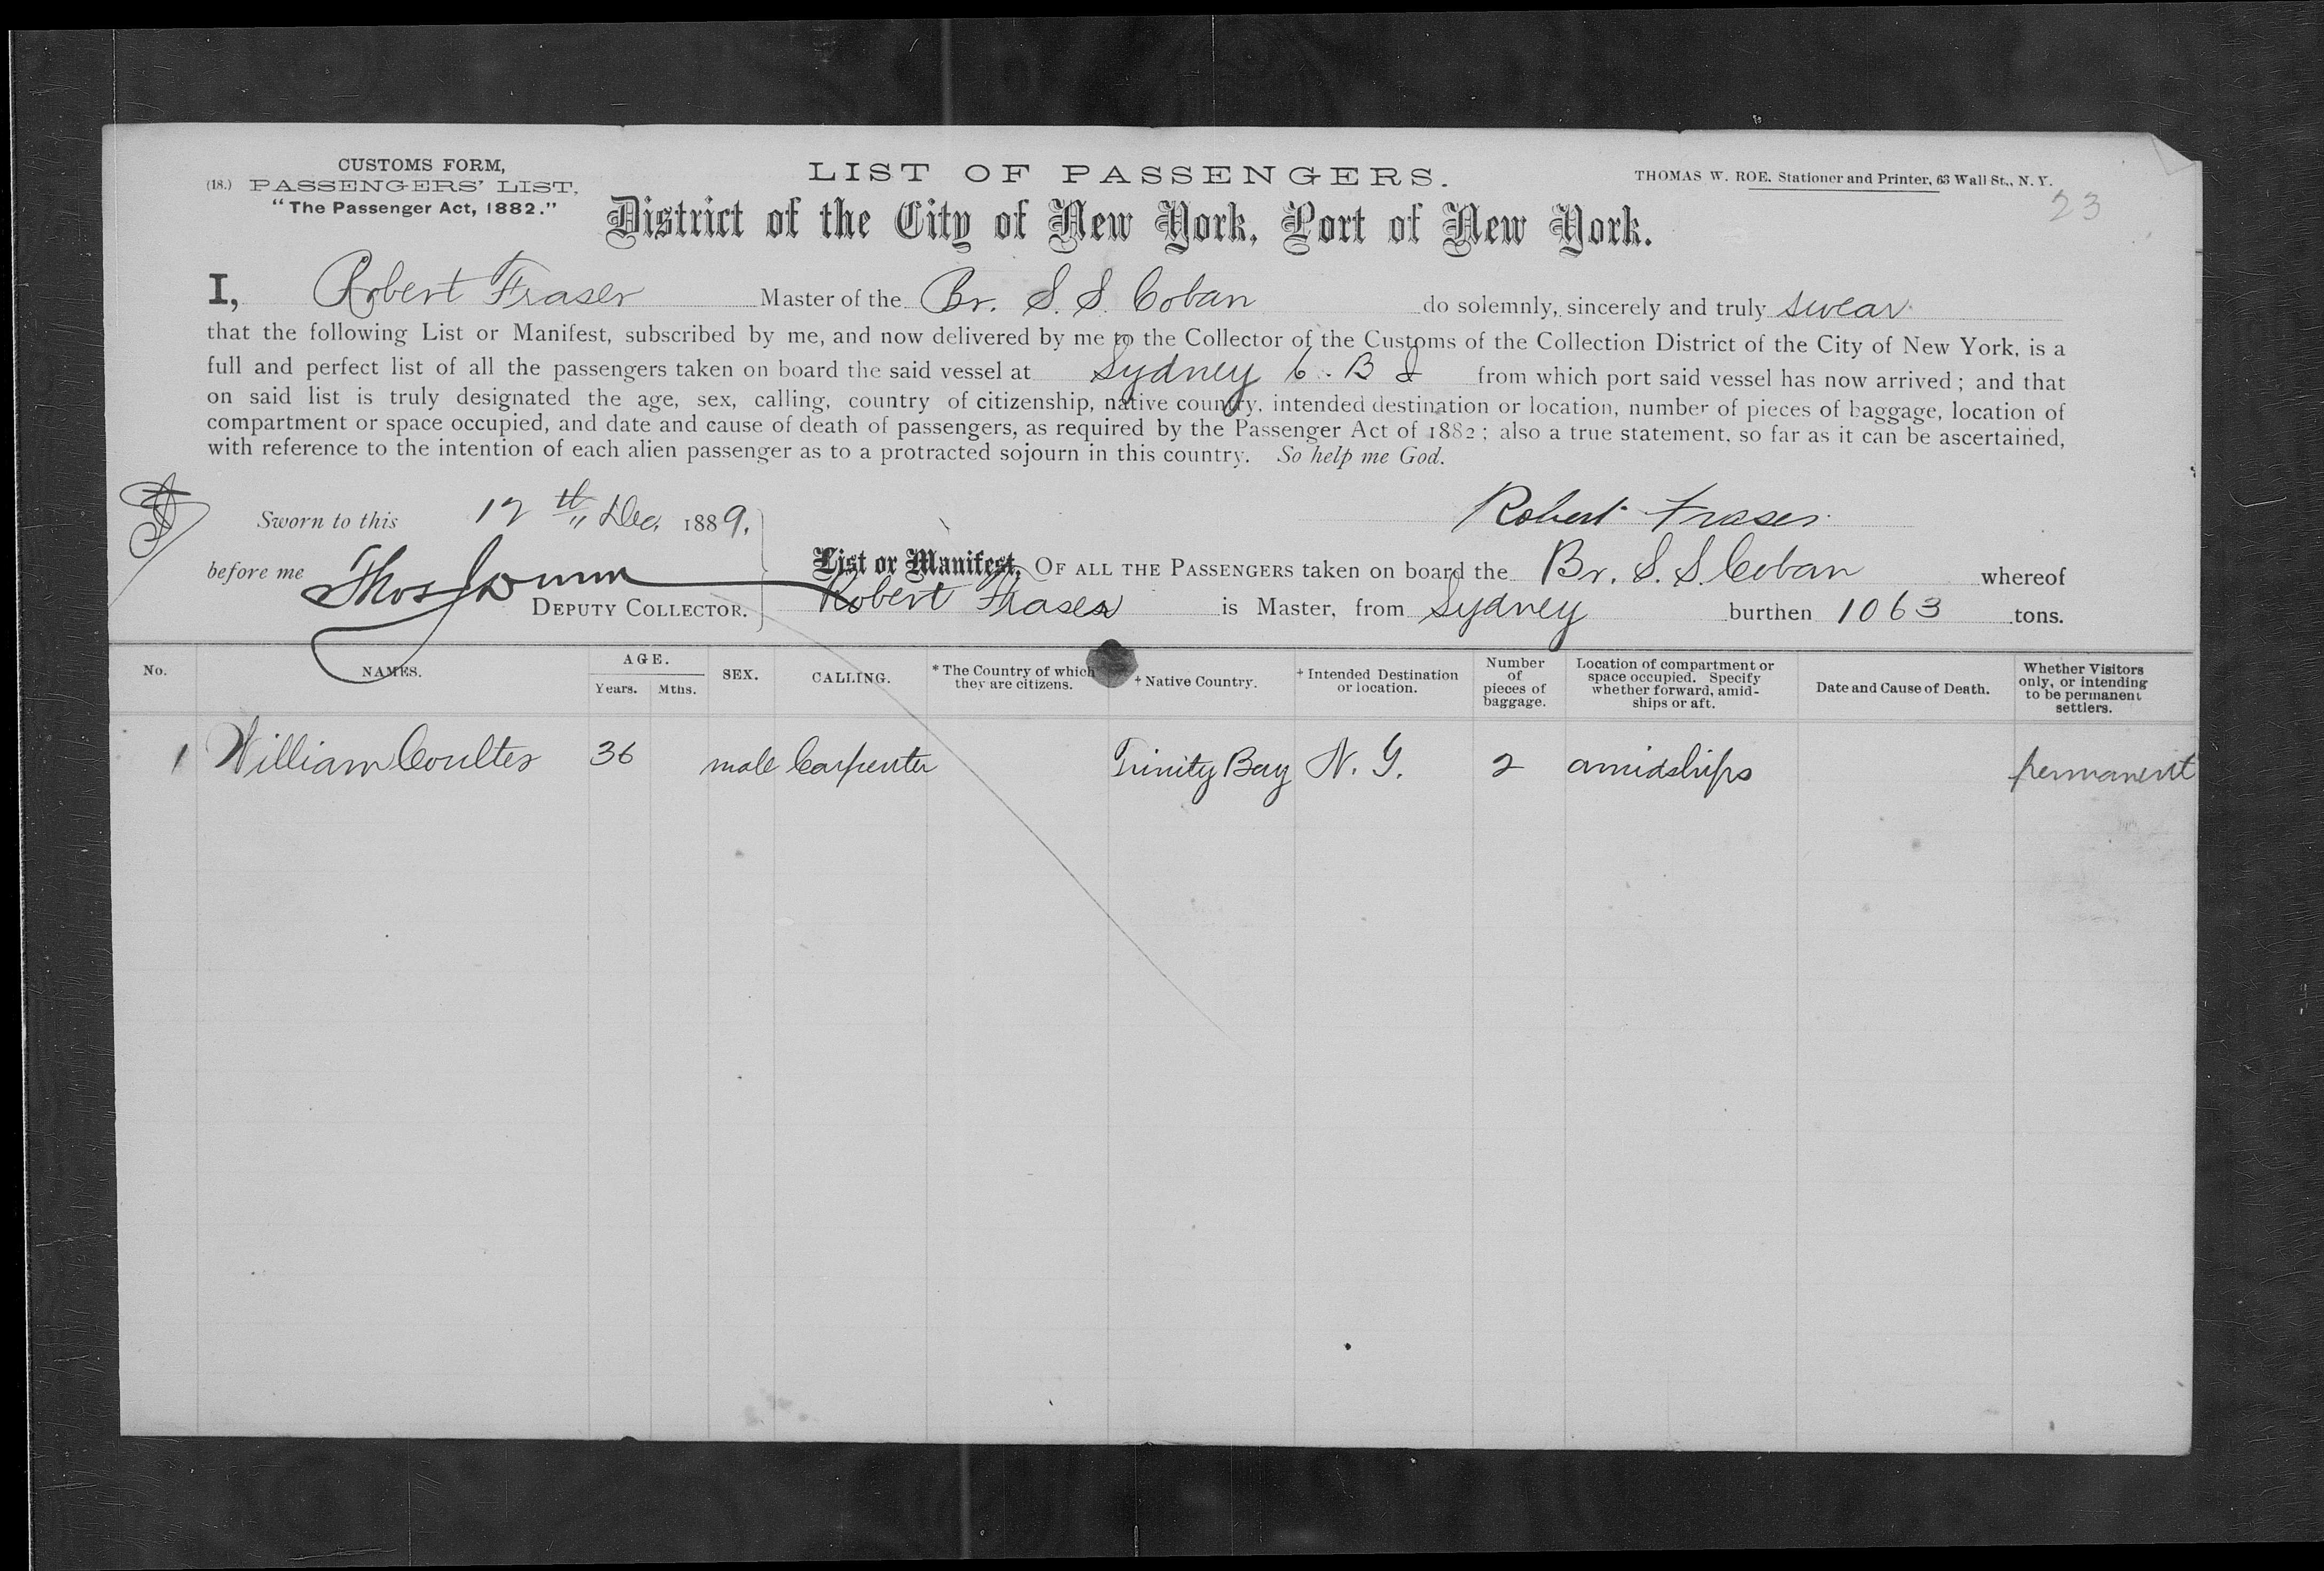 CUSTOMS FORM,
(18.) PASSENGERS' LIST.
"The Passenger Act, 1882."
LIST OF PASSENGERS.
THOMAS W. ROE. Stationer and Printer, 63 Wall St., N. Y.
23
District of the City of New York, Port of New York.
I, Robert Fraser Master of the Br. S. S. Coban do solemnly, sincerely and truly swear
that the following List or Manifest, subscribed by me, and now delivered by me to the Collector of the Customs of the Collection District of the City of New York, is a
full and perfect list of all the passengers taken on board the said vessel at Sydney C. B I from which port said vessel has now arrived; and that
on said list is truly designated the age, sex, calling, country of citizenship, native country, intended destination or location, number of pieces of baggage, location of
compartment or space occupied, and date and cause of death of passengers, as required by the Passenger Act of 1882; also a true statement, so far as it can be ascertained,
with reference to the intention of each alien passenger as to a protracted sojourn in this country. So help me God.
Sworn to this 12th Dec. 1889.
Robert Fraser
before me Thos
DEPUTY COLLECTOR.
List or Manifest, OF ALL THE PASSENGERS taken on board the Br. S. S. Coban whereof
Robert Fraser is Master, from Sydney burthen 1063 tons.
No. NAMES. AGE. Years. Mths. SEX. CALLING. * The Country of which they are citizens. + Native Country. + Intended Destination or location. Number of pieces of baggage. Location of compartment or space occupied. Specify whether forward, amid-ships or aft. Date and Cause of Death. Whether Visitors only, or intending to be permanent settlers.
1 William Coulter 36 male Carpenter Trinity Bay N. Y. 2 amidships permanent